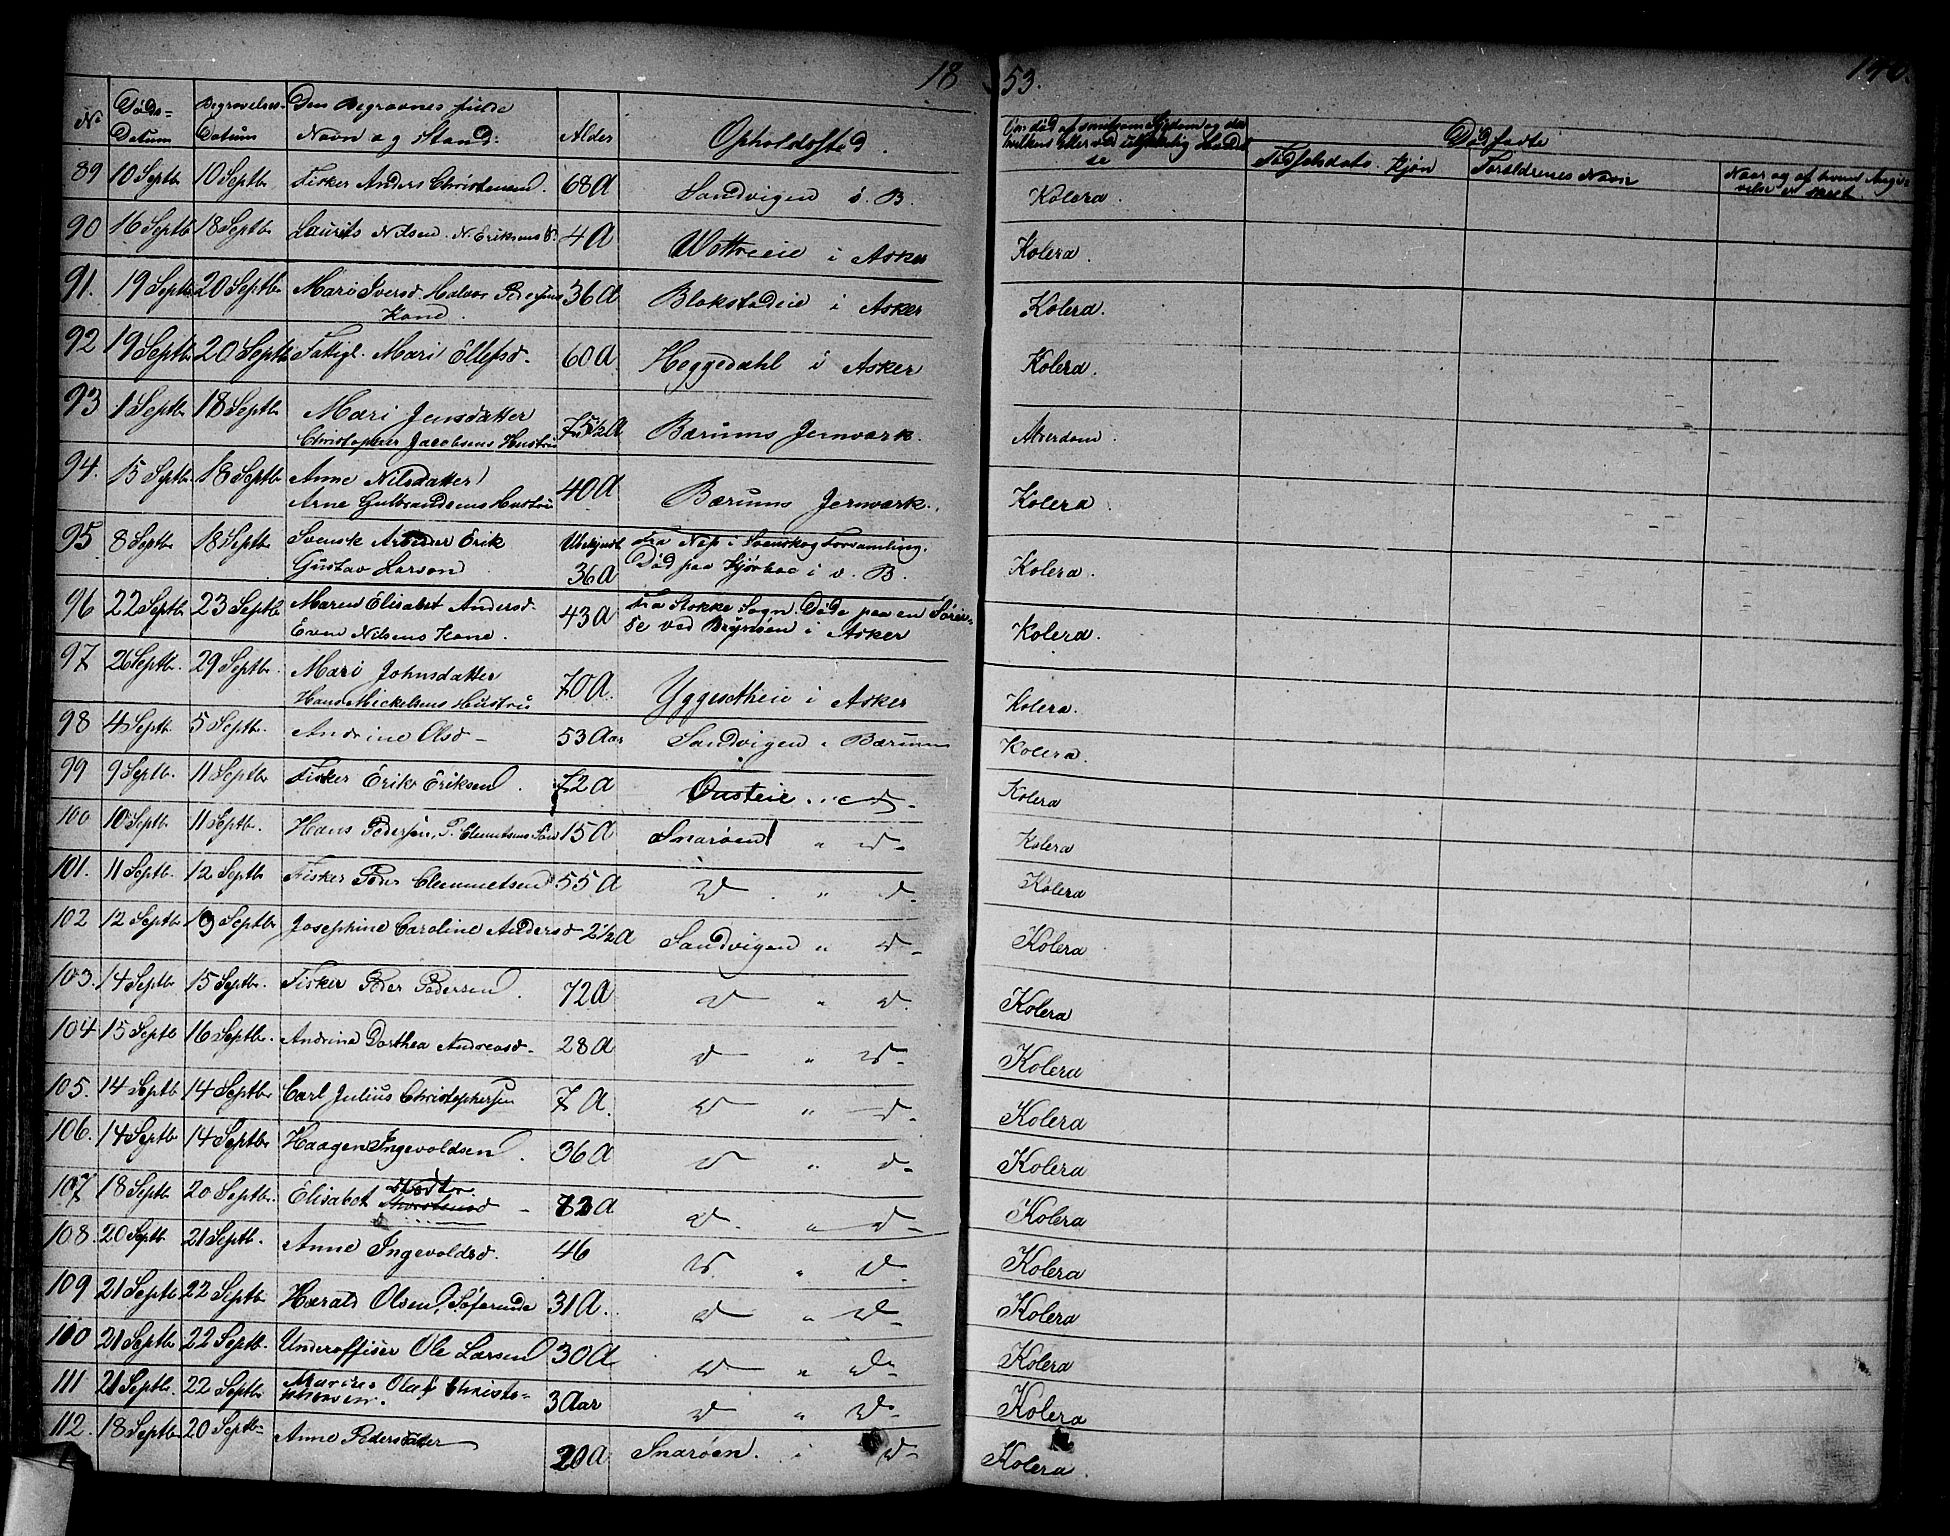 18 53.
No Døds- Datum Begravelses- Datum Den Begravnes fulde Navn og Stand. Alder Opholdssted. Om død af smitsom Sygdom og da hvilken eller ved ulykkelig Hændelse Dødfødte
Fødselsdato. Kjøn Forældrenes Navn Naar og af hvem Angivelse er skeet
89 10 Septb 10 Septb Fisker Anders Christensen. 68 A Sandvigen i V. B. Kolera.
90 16 Septb 18 Septb Laurits Nilsen. N. Eriksens S. 4 A Wettreeie i Asker Kolera.
91. 19 Septb 20 Septb Mari Iversd. Halvor Pedersens 36 A Blakstadeie i Asker Kolera.
Kone.
92 19 Septb 20 Septb Fattigl. Mari Ellefsd. 60 A Heggedahl i Asker Kolera.
93 1 Septb 18 Septb Mari Jensdatter
Christopher Jacobsens Hustru 75 1/2 A Bærums Jernværk. Alderdom.
94. 15 Septb 18 Septb Anne Nilsdatter
Arne Gulbrandsens Hustru 40 A Bærums Jernværk. Kolera.
95. 8 Septb 18 Septb Svensk Arbeider Erik Ubekjendt Fra i Svenskog Forsamling.
Gustav Larson 36 A Død paa Kjørboe i V. B. Kolera.
96 22 Septb 23 Septb Maren Elisabet Andersd. 43 A Fra Stokke Sogn. Døde paa en Førei-
Even Nilsens Kone. se ved Brynsøen i Asker Kolera.
97 26 Septb. 29 Septb Mari Johnsdatter
Hans Mickelsens Hustru 70 A. Yggesetheie i Asker Kolera.
98 4 Septb 5 Septb. Andrine Olsd - 53 Aar Sandvigen i Bærum Kolera.
99 9 Septb. 11 Septb. Fisker Erik Eriksen. 72 A Ousteie d- Kolera
100 10 Septb 11 Septb. Hans Pedersen, P. Clemetsens Søn 15 A Snarøen " d- Kolera
101. 11 Septb. 12 Septb Fisker Peder Clemmetsen 55 A d " d- Kolera
102 12 Septb 19 Septb Josephine Caroline Andersd 2 1/2 A Sandvigen " d- Kolera
103. 14 Septb 15 Septb. Fisker Peder Pedersen. 72 A d " d. Kolera
104 15 Septb 16 Septb. Andrine Dorthea Andreasd. 28 A d " d- Kolera
105. 14 Septb 14 Septb. Carl Julius Christophersen 7 A. d " d- Kolera
106. 14 Septb 14 Septb Haagen Ingevoldsen. 36 A d " d- Kolera
107 18 Septb 20 Septb. Elisabet Thorstensd - 73 A d. " d- Kolera
108. 20 Septb 21 Septb. Anne Ingevoldsd. 46 d. " d. Kolera
109 21 Septb 22 Septb Harald Olsen, Søfarende 31 A. d " d- Kolera
110 21 Septb 22 Septb. Underoffiser Ole Larsen 30 A d " d- Kolera
111 21 Septb. 22 Septb Marius Olaf Christo-
phersen. 3 Aar d " d- Kolera
112. 18 Septb 20 Septb- Anne Pedersdatter 20 A Snarøen. i d- Kolera.